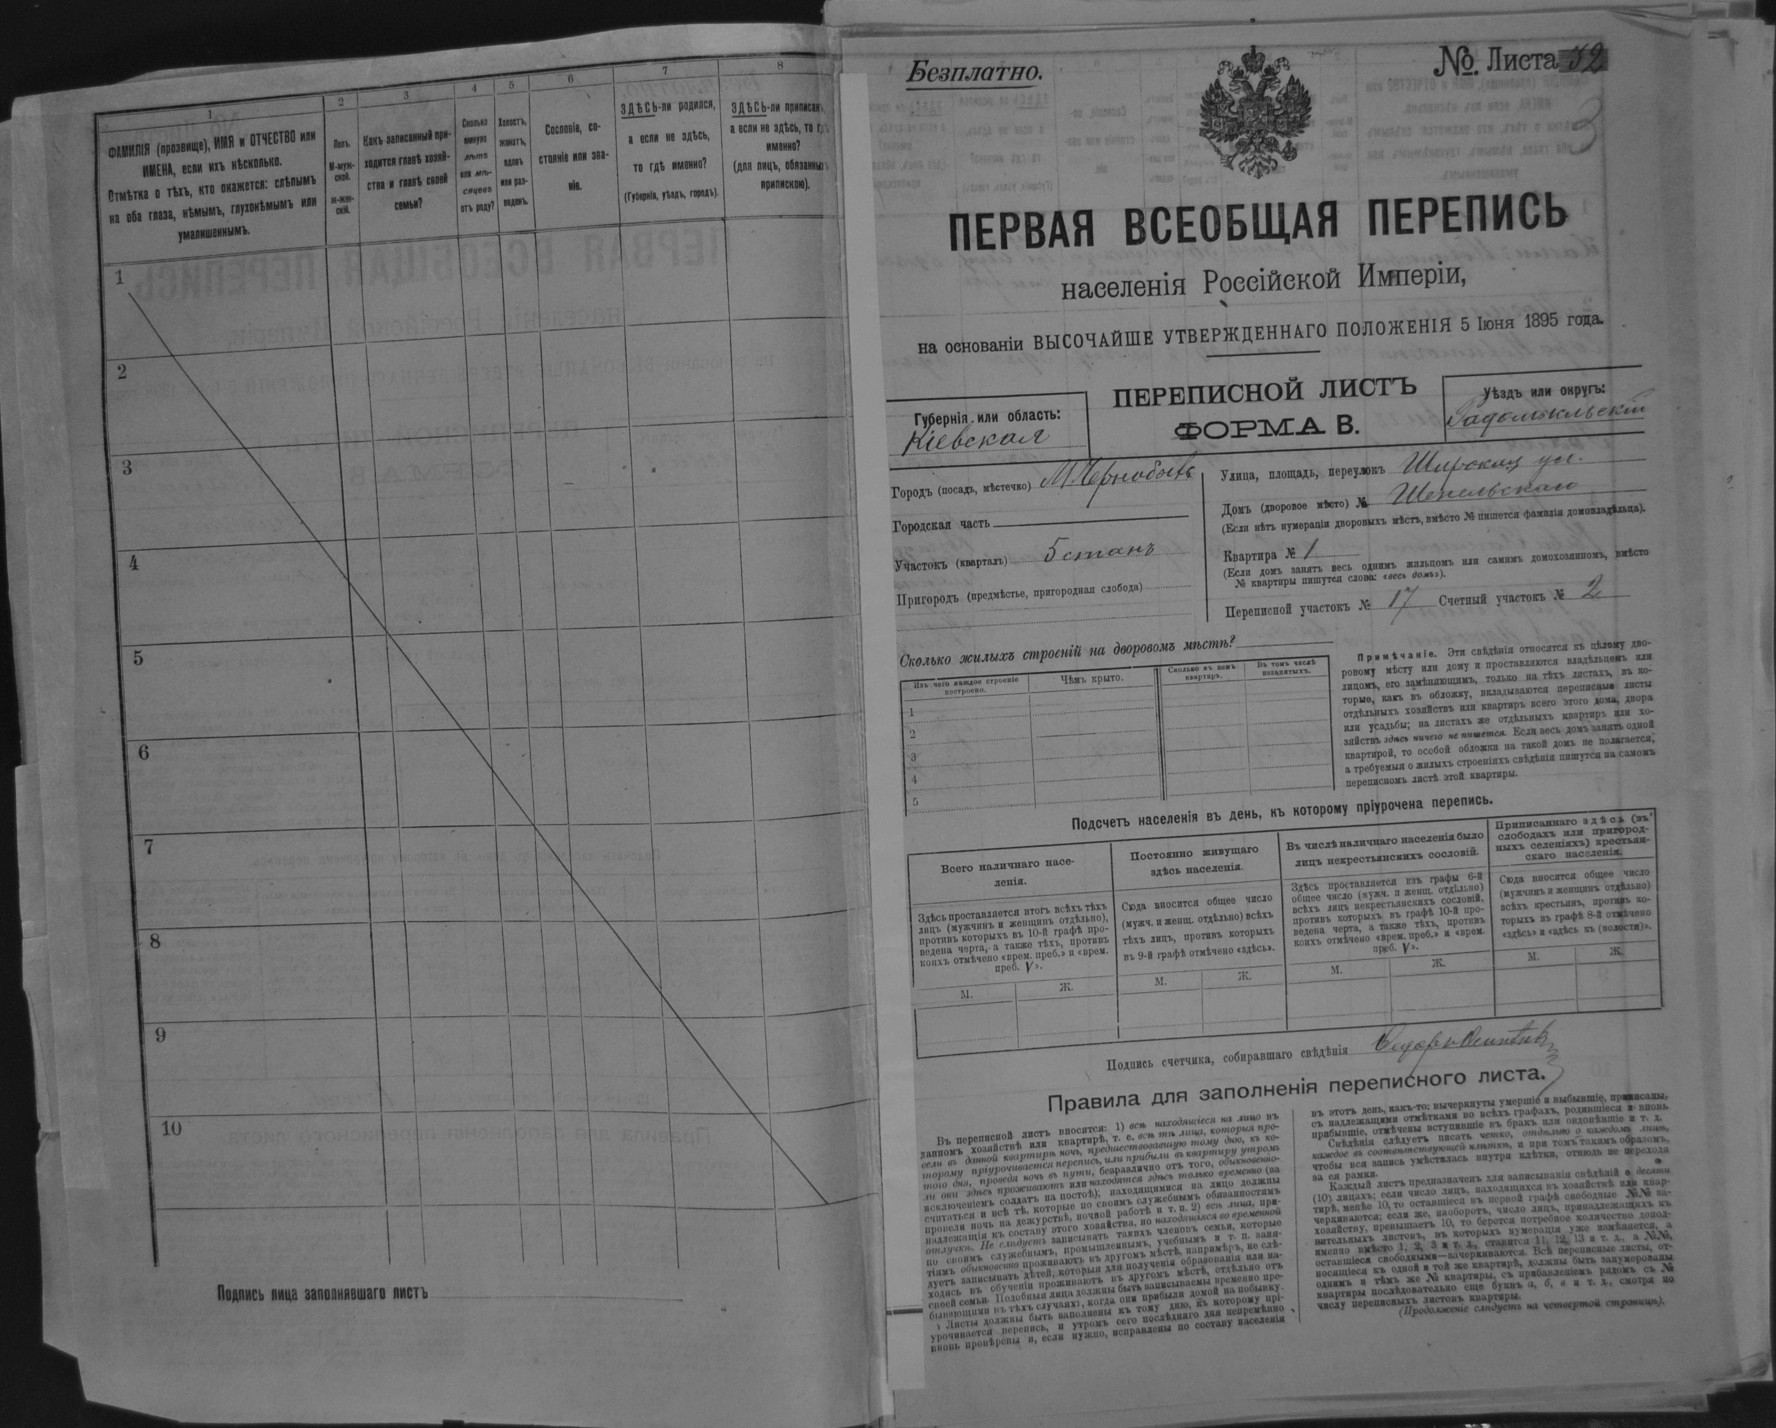 1
2
3
4
5
6
7
8
ФАМИЛІЯ (прозвище), ИМЯ и ОТЧЕСТВО или
ИМЕНА, если ихъ нѣсколько.
Отмѣтка о тѣхъ, кто окажется: слѣпымъ
на оба глаза, нѣмымъ, глухонѣмымъ или
умалишеннымъ.
Полъ.
М-муж-
ской.
ж-жен-
скій.
Какъ записанный при-
ходится главѣ хозяй-
ства и главѣ своей
семьи?
Сколько
минуло
лѣтъ
или мѣ-
сяцевъ
отъ роду?
Холостъ,
женатъ,
вдовъ
или раз-
веденъ.
Сословіе, со-
стояніе или зва-
ніе.
ЗДѢСЬ-ли родился,
а если не здѣсь,
то гдѣ именно?
(Губернія, уѣздъ, городъ).
ЗДѢСЬ-ли приписан
а если не здѣсь, то гдѣ
именно?
(для лицъ, обязанныхъ
припискою).
1
2
3
4
5
6
7
8
9
10
Подпись лица заполнявшаго листъ
Безплатно.
№ Листа 52
ПЕРВАЯ ВСЕОБЩАЯ ПЕРЕПИСЬ
населенія Россійской Имперіи,
на основаніи ВЫСОЧАЙШЕ УТВЕРЖДЕННАГО ПОЛОЖЕНІЯ 5 Іюня 1895 года.
Губернія или область:
Кіевская
ПЕРЕПИСНОЙ ЛИСТЪ
ФОРМА В.
Уѣздъ или округъ:
Радомысльскій
Городъ (посадъ, мѣстечко) М. Чернобыль
Городская часть
Участокъ (кварталъ) 5 станъ
Пригородъ (предмѣстье, пригородная слобода)
Улица, площадь, переулокъ Широкая ул.
Домъ (дворовое мѣсто) № Шепельскаго
(Если нѣтъ нумераціи дворовыхъ мѣстъ, вмѣсто № пишется фамилія домовладѣльца).
Квартира № 1
(Если домъ занятъ весь однимъ жильцомъ или самимъ домохозяиномъ, вмѣсто
№ квартиры пишутся слова: «весь домъ»).
Переписной участокъ № 17 Счетный участокъ № 2
Сколько жилыхъ строеній на дворовомъ мѣстѣ?
Изъ чего каждое строеніе
построено.
Чѣмъ крыто.
Сколько въ немъ
квартиръ.
Въ томъ числѣ
незанятыхъ.
1
2
3
4
5
Примѣчаніе. Эти свѣдѣнія относятся къ цѣлому дво-
ровому мѣсту или дому и проставляются владѣльцемъ или
лицомъ, его замѣняющимъ, только на тѣхъ листахъ, въ ко-
торые, какъ въ обложку, вкладываются переписные листы
отдѣльныхъ хозяйствъ или квартиръ всего этого дома, двора
или усадьбы; на листахъ же отдѣльныхъ квартиръ или хо-
зяйствъ здѣсь ничего не пишется. Если весь домъ занятъ одной
квартирой, то особой обложки на такой домъ не полагается,
а требуемыя о жилыхъ строеніяхъ свѣдѣнія пишутся на самомъ
переписномъ листѣ этой квартиры.
Подсчетъ населенія въ день, къ которому пріурочена перепись.
Всего наличнаго насе-
ленія.
Постоянно живущаго
здѣсь населенія.
Въ числѣ наличнаго населенія было
лицъ некрестьянскихъ сословій.
Приписаннаго здѣсь (въ
слободахъ или пригород-
ныхъ селеніяхъ) крестьян-
скаго населенія.
Здѣсь проставляется итогъ всѣхъ тѣхъ
лицъ (мужчинъ и женщинъ отдѣльно),
противъ которыхъ въ 10-й графѣ про-
ведена черта, а также тѣхъ, противъ
коихъ отмѣчено «врем. преб.» и «врем.
преб. V».
Сюда вносится общее число
(мужч. и женщ. отдѣльно) всѣхъ
тѣхъ лицъ, противъ которыхъ
въ 9-й графѣ отмѣчено «здѣсь».
Здѣсь проставляется изъ графы 6-й
общее число (мужч. и женщ. отдѣльно)
всѣхъ лицъ некрестьянскихъ сословій,
противъ которыхъ въ графѣ 10-й про-
ведена черта, а также тѣхъ, противъ
коихъ отмѣчено «врем. преб.» и «врем.
преб. V».
Сюда вносится общее число
(мужчинъ и женщинъ отдѣльно)
всѣхъ крестьянъ, противъ ко-
торыхъ въ графѣ 8-й отмѣчено
«здѣсь» и «здѣсь къ (волости)».
М.
Ж.
М.
Ж.
М.
Ж.
М.
Ж.
Подпись счетчика, собиравшаго свѣдѣнія
Правила для заполненія переписного листа.
Въ переписной листъ вносятся: 1) всѣ находящіеся на лицо въ
данномъ хозяйствѣ или квартирѣ, т. е. всѣ тѣ лица, которыя про-
вели въ данной квартирѣ ночь, предшествовавшую тому дню, къ ко-
торому пріурочивается перепись, или прибыли въ квартиру утромъ
того дня, проведя ночь въ пути, безразлично отъ того, обыкновенно-
ли они здѣсь проживаютъ или находятся здѣсь только временно (за
исключеніемъ солдатъ на постоѣ); находящимися на лицо должны
считаться и всѣ тѣ, которые по своимъ служебнымъ обязанностямъ
провели ночь на дежурствѣ, ночной работѣ и т. п. 2) всѣ лица, при-
надлежащія къ составу этого хозяйства, но находящіяся во временной
отлучкѣ. Не слѣдуетъ записывать такихъ членовъ семьи, которые
по своимъ служебнымъ, промышленнымъ, учебнымъ и т. п. заня-
тіямъ обыкновенно проживаютъ въ другомъ мѣстѣ, напримѣръ, не слѣ-
дуетъ записывать дѣтей, которыя для полученія образованія или на-
ходясь въ обученіи проживаютъ въ другомъ мѣстѣ, отдѣльно отъ
своей семьи. Подобныя лица должны быть записываемы временно пре-
бывающими въ тѣхъ случаяхъ, когда они прибыли домой на побывку.
Листы должны быть заполнены къ тому дню, къ которому прі-
урочивается перепись, и утромъ сего послѣдняго дня непремѣнно
вновь провѣрены и, если нужно, исправлены по составу населенія
въ этотъ день, какъ-то: вычеркнуты умершіе и выбывшіе, приписаны,
съ надлежащими отмѣтками во всѣхъ графахъ, родившіеся и вновь
прибывшіе, отмѣчены вступившіе въ бракъ или овдовѣвшіе и т. д.
Свѣдѣнія слѣдуетъ писать четко, отдѣльно о каждомъ лицѣ,
каждое въ соотвѣтствующей клѣткѣ, и при томъ такимъ образомъ,
чтобы вся запись умѣстилась внутри клѣтки, отнюдь не переходя
за ея рамки.
Каждый листъ предназначенъ для записыванія свѣдѣній о десяти
(10) лицахъ; если число лицъ, находящихся въ хозяйствѣ или квар-
тирѣ, менѣе 10, то оставшіеся въ первой графѣ свободные №№ за-
черкиваются; если же, наоборотъ, число лицъ, принадлежащихъ къ
хозяйству, превышаетъ 10, то берется потребное количество допол-
нительныхъ листовъ, въ которыхъ нумерація уже измѣняется, а
именно вмѣсто 1, 2, 3 и т. д., ставится 11, 12, 13 и т. д., а №№,
оставшіеся свободными—зачеркиваются. Всѣ переписные листы, от-
носящіеся къ одной и той же квартирѣ, должны быть занумерованы
однимъ и тѣмъ же № квартиры, съ прибавленіемъ рядомъ съ №
квартиры послѣдовательно еще буквъ а, б, в и т. д., смотря по
числу переписныхъ листовъ квартиры.
(Продолженіе слѣдуетъ на четвертой страницѣ).